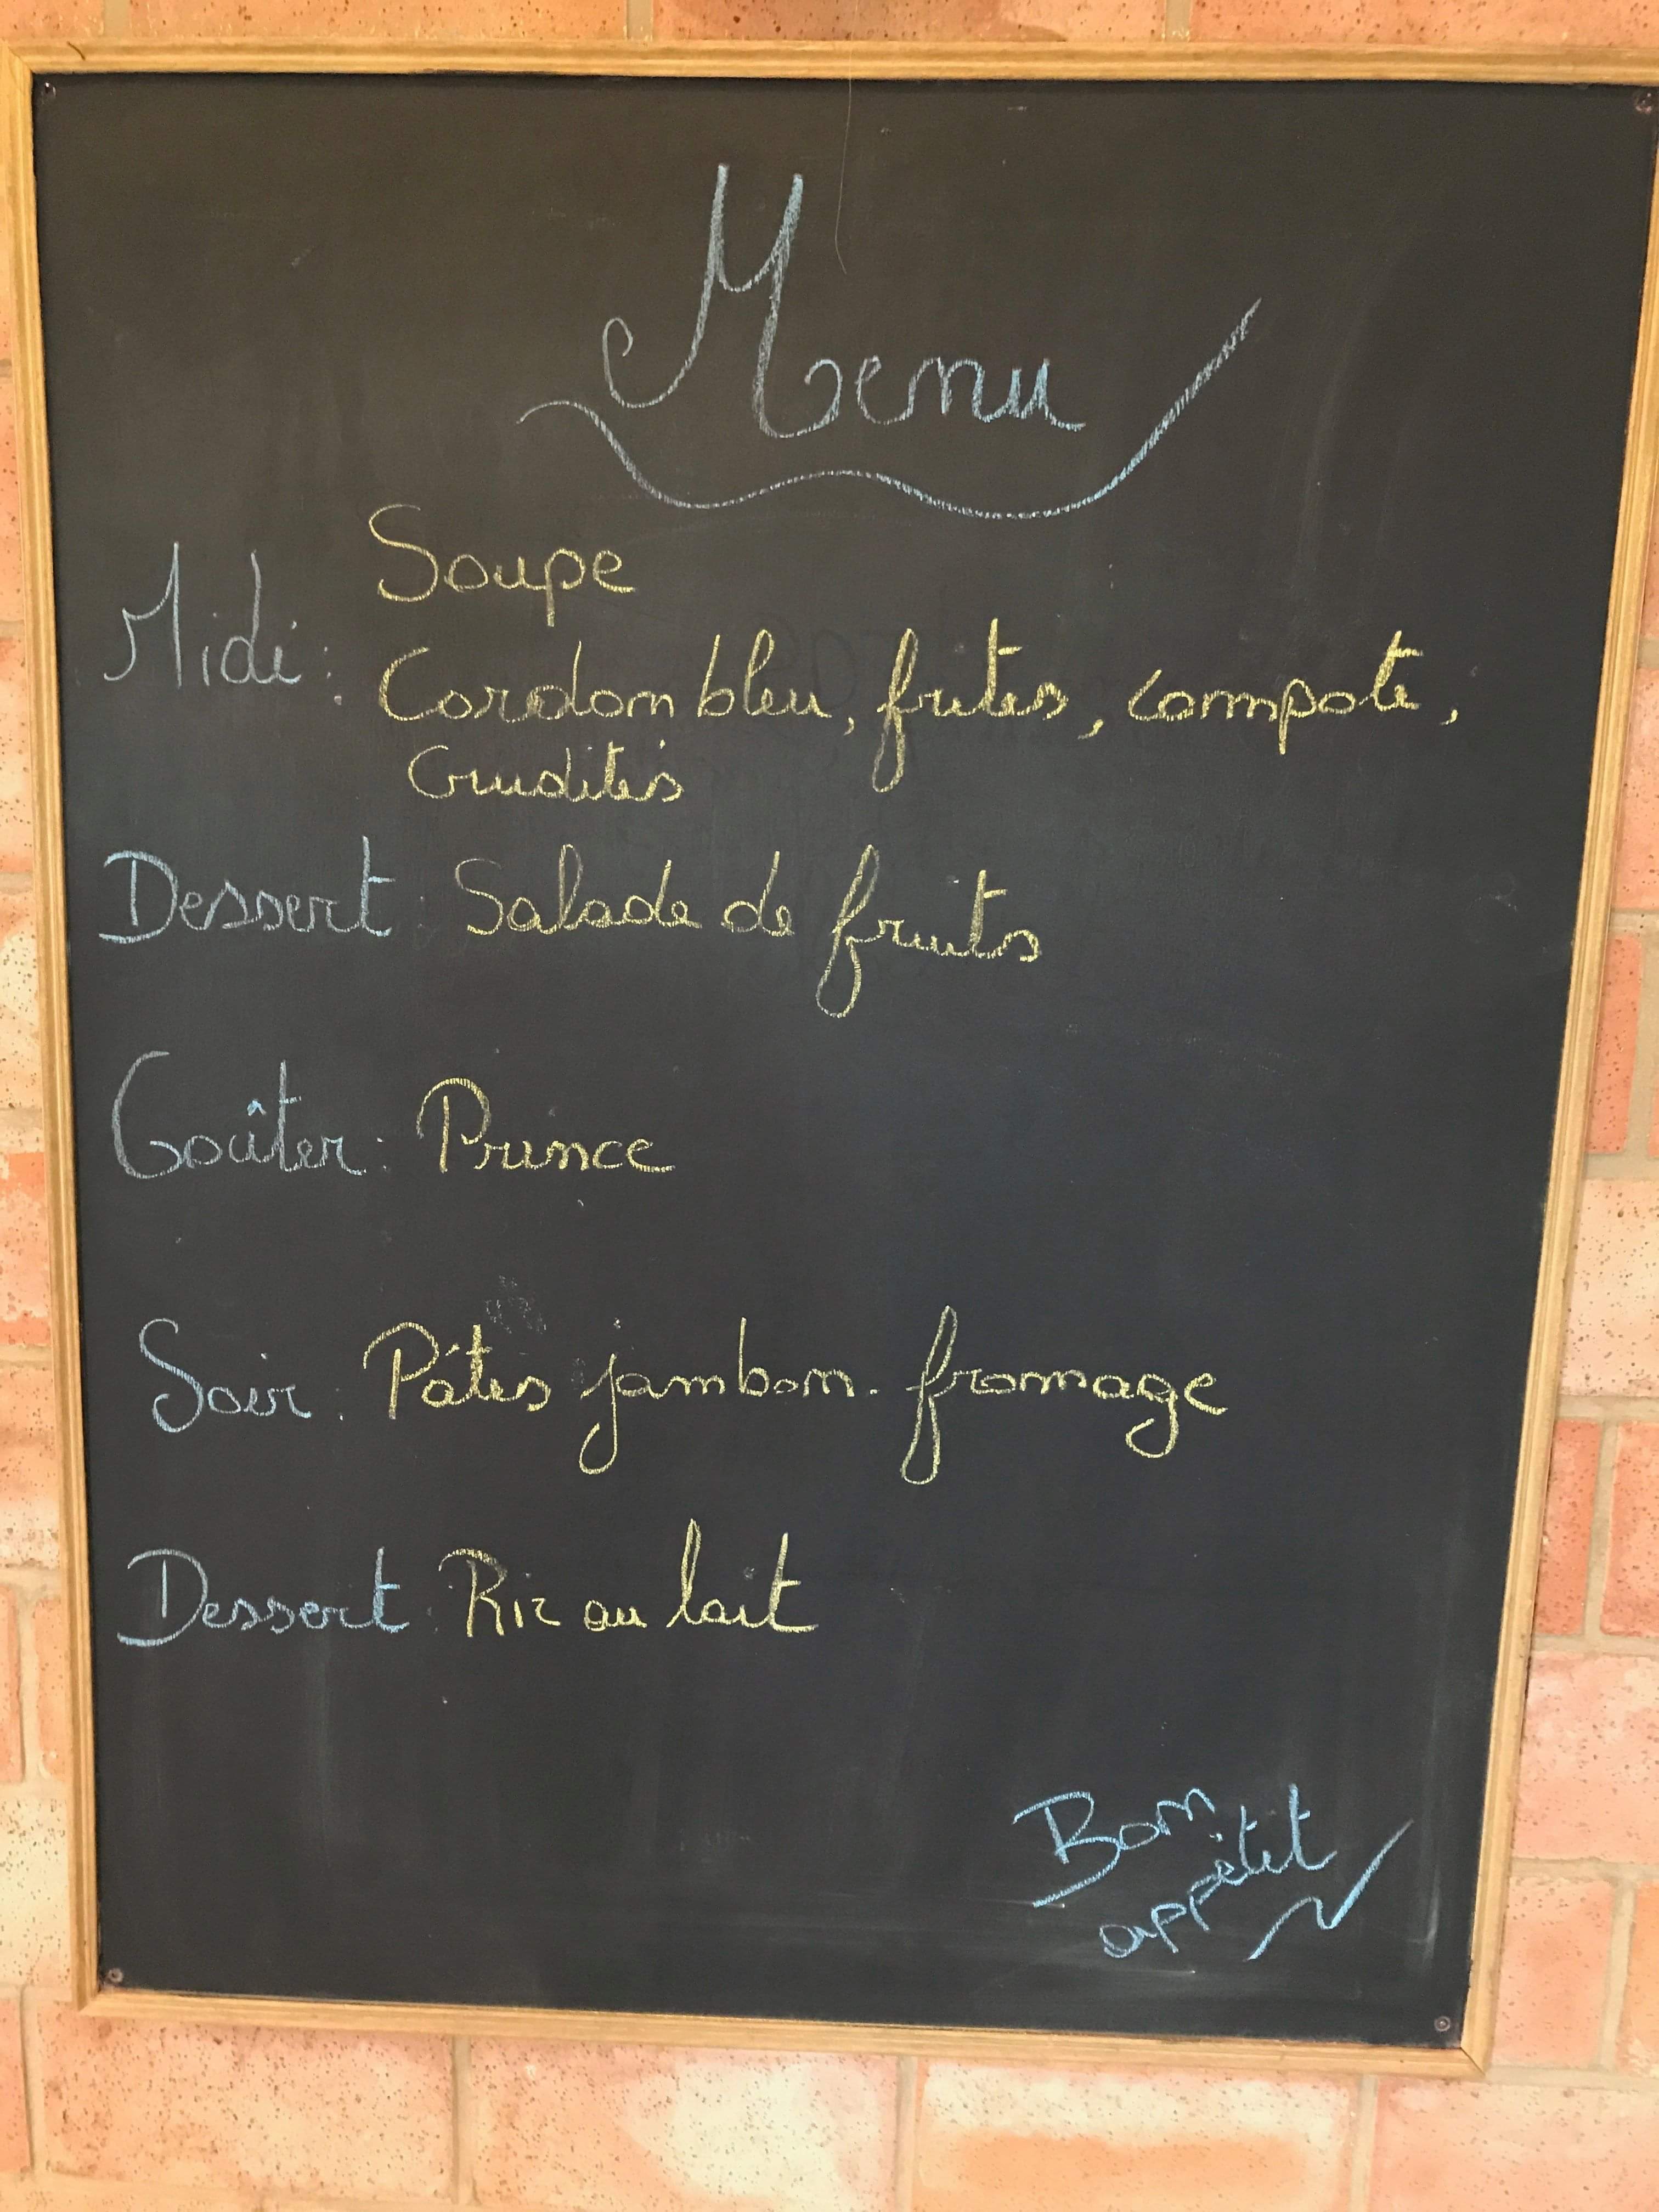 Menu
Midi : Soupe
Cordon bleu, frites, compote,
Crudités
Dessert : Salade de fruits
Goûter : Prince
Soir : Pâtes jambon-fromage
Dessert : Riz au lait
Bon
appétit